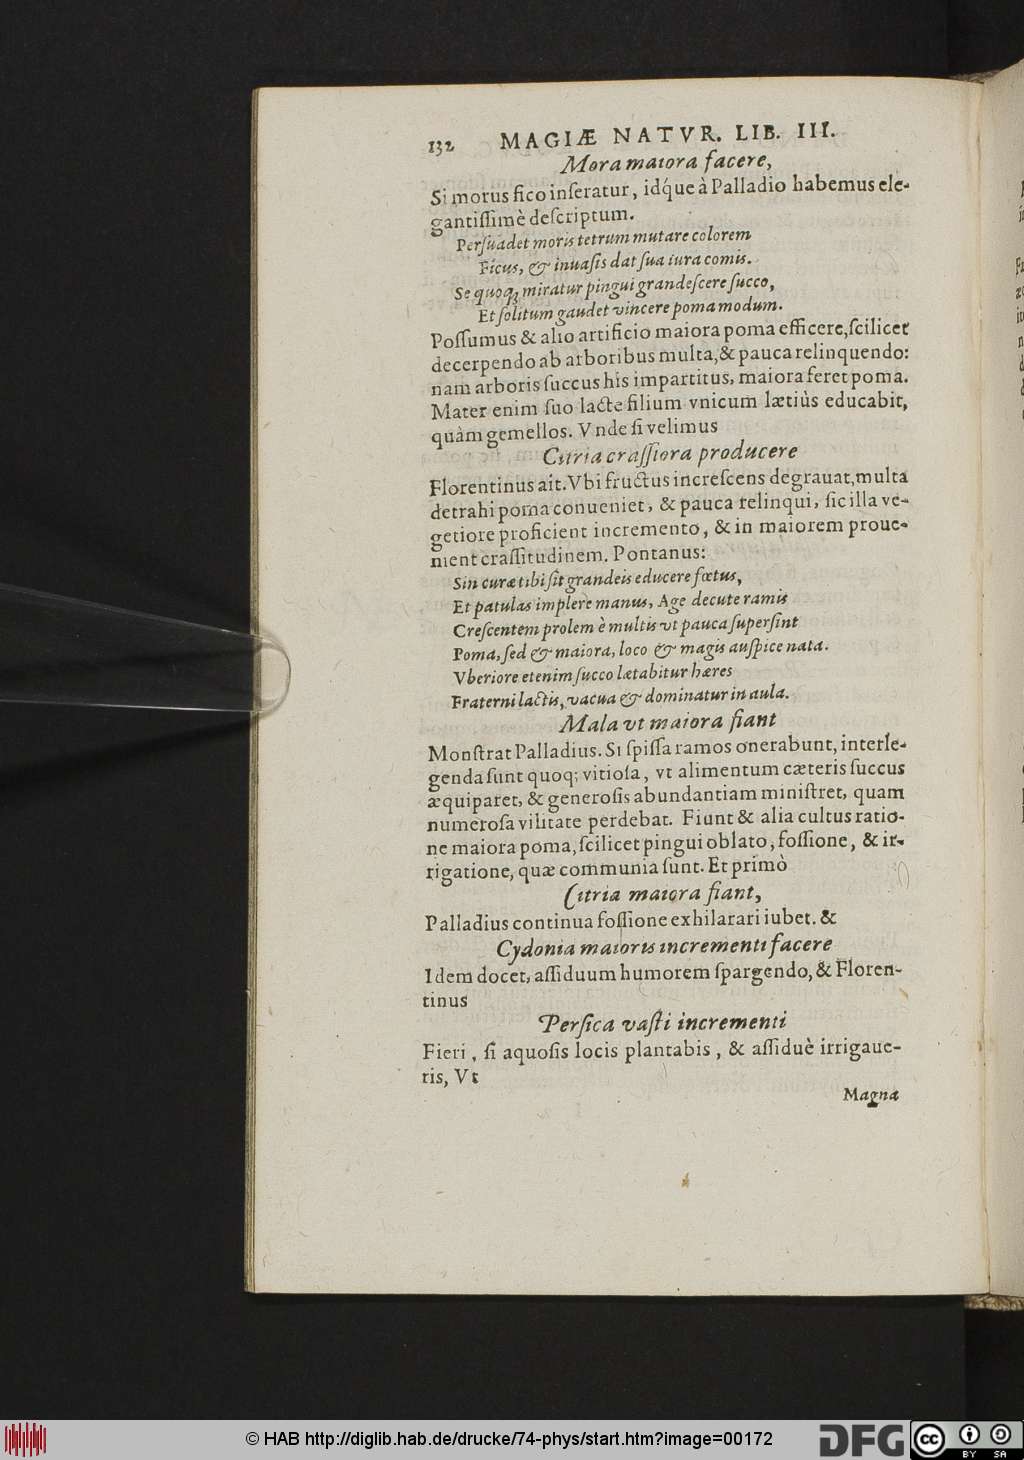 132 MAGIÆ NATVR. LIB. III.
Mora maiora facere,
Si morus fico inſeratur, idq́ue à Palladio habemus ele-
gantiſſimè deſcriptum.
Perſuadet moris tetrum mutare colorem
Ficus, & inuaſis dat ſua iura comis.
Se quoq; miratur pingui grandeſcere ſucco,
Et ſolitum gaudet vincere poma modum.
Poſſumus & alio artificio maiora poma efficere, ſcilicet
decerpendo ab arboribus multa, & pauca relinquendo:
nam arboris ſuccus his impartitus, maiora feret poma.
Mater enim ſuo lacte filium vnicum lætiùs educabit,
quàm gemellos. Vnde ſi velimus
Citria craſſiora producere
Florentinus ait. Vbi fructus increſcens degrauat, multa
detrahi poma conueniet, & pauca relinqui, ſic illa ve-
getiore proficient incremento, & in maiorem proue-
nient craſſitudinem. Pontanus:
Sin curæ tibi ſit grandeis educere fœtus,
Et patulas implere manus, Age decute ramis
Creſcentem prolem è multis vt pauca ſuperſint
Poma, ſed & maiora, loco & magis auſpice nata.
Vberiore etenim ſucco lætabitur hæres
Fraterni lactis, vacua & dominatur in aula.
Mala vt maiora fiant
Monſtrat Palladius. Si ſpiſſa ramos onerabunt, interle-
genda ſunt quoq; vitioſa, vt alimentum cæteris ſuccus
æquiparet, & generoſis abundantiam miniſtret, quam
numeroſa vilitate perdebat. Fiunt & alia cultus ratio-
ne maiora poma, ſcilicet pingui oblato, foſſione, & ir-
rigatione, quæ communia ſunt. Et primò
Citria maiora fiant,
Palladius continua foſſione exhilarari iubet. &
Cydonia maioris incrementi facere
Idem docet, aſſiduum humorem ſpargendo, & Floren-
tinus
Perſica vaſti incrementi
Fieri, ſi aquoſis locis plantabis, & aſſiduè irrigaue-
ris, Vt
Magnæ
© HAB http://diglib.hab.de/drucke/74-phys/start.htm?image=00172
DFG
cc BY SA